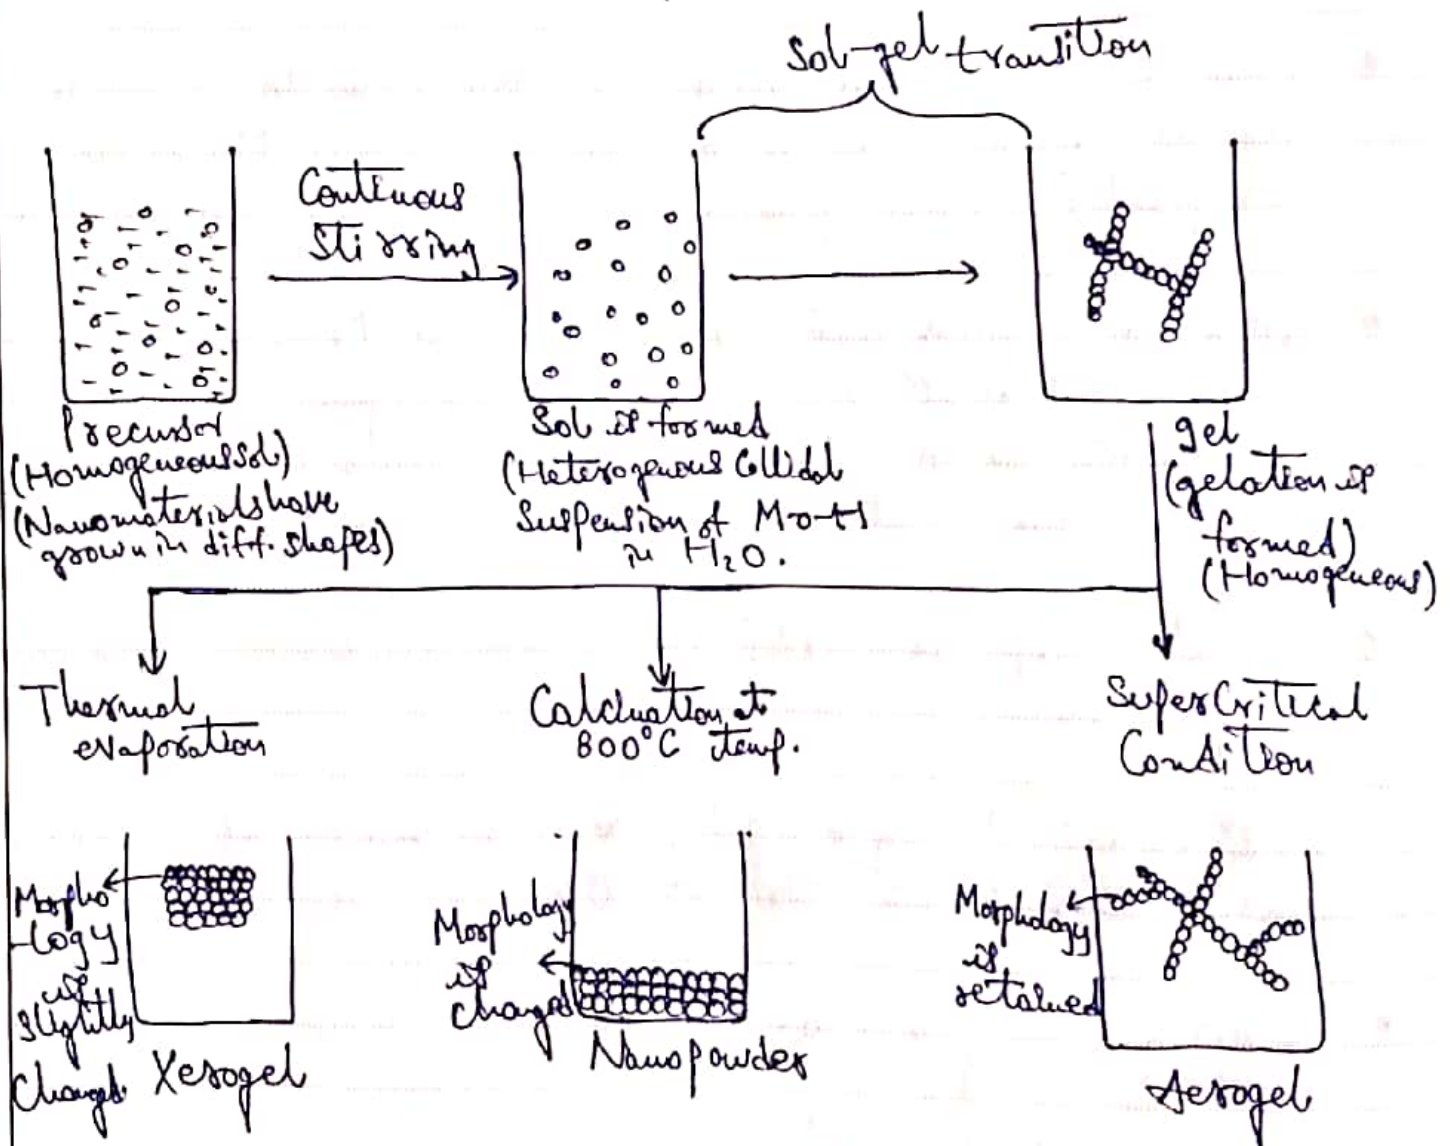 Sol-gel transition
Continuous
Stirring
Precursor
(Homogeneous sol)
(Nanomaterials have
grown in diff. shapes)
Sol is formed
(Heterogenous Collidal
Suspension of M-O-H
in H₂O.
gel
(gelation is
formed)
(Homogeneous)
Thermal
evaporation
Calcination at
800°C temp.
SuperCritical
Condition
Morpho
-logy
is
slightly
Changed.
Xerogel
Morphology
is
changed
Nanopowder
Morphology
is
retained
Aerogel